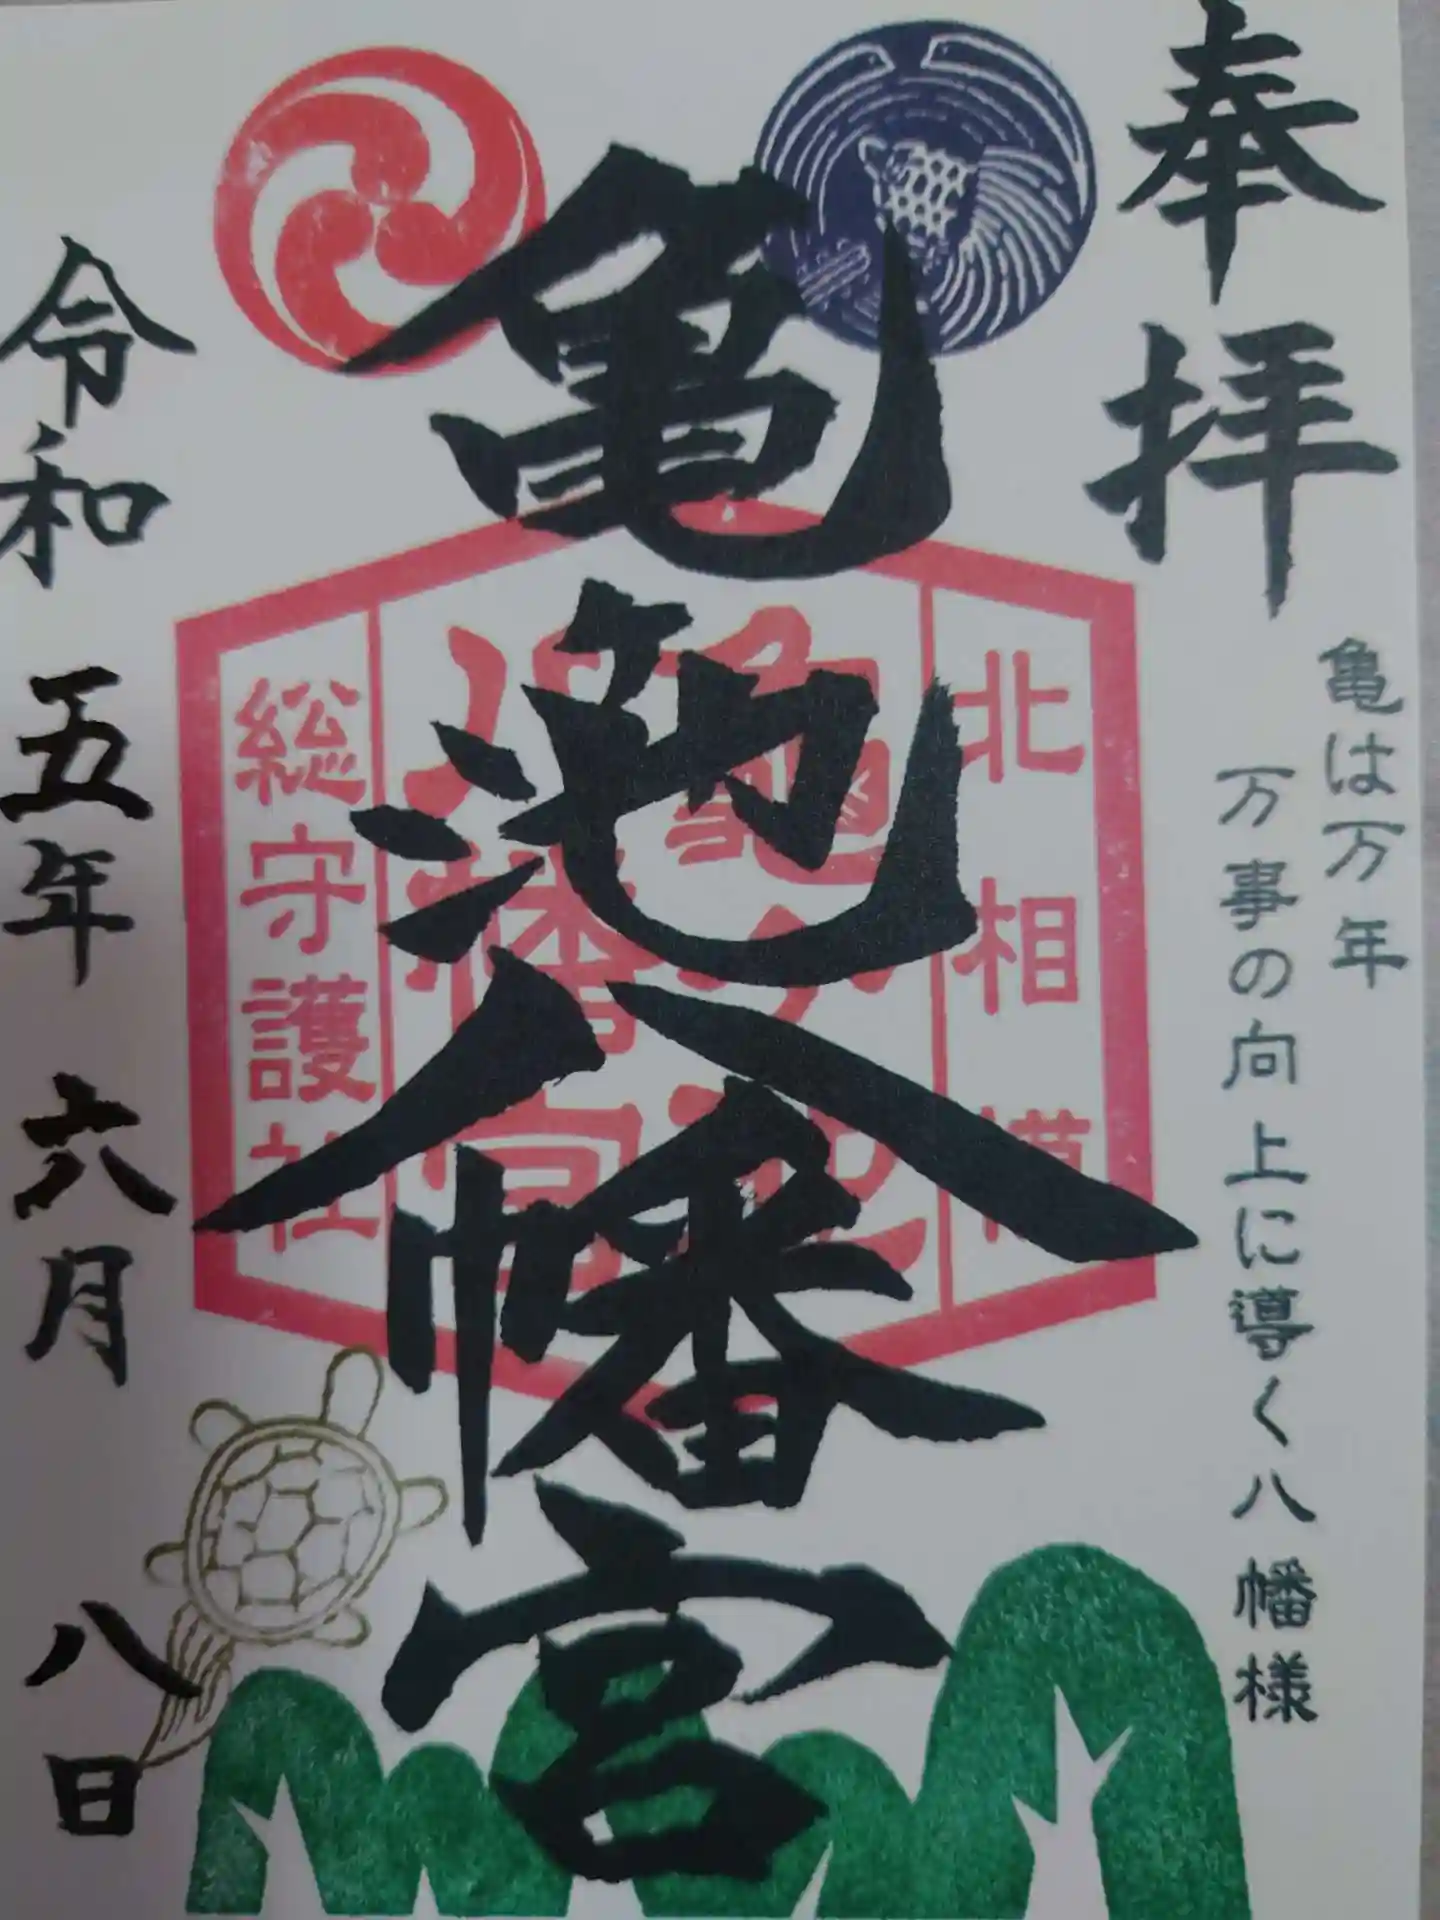 奉拝
亀は万年
万事の向上に導く八幡様
亀池八幡宮
北相模
亀ヶ池
八幡宮
総守護社
令和五年六月八日